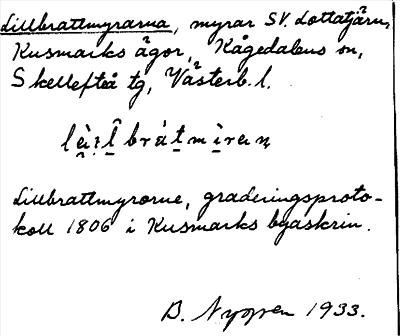 Lillbrattmyrarna, myrar SV. Lottatjärn,
Kusmarks ägor, Kågedalens sn,
Skellefteå tg, Västerb. l.
Lillbrattmyrorne, graderingsproto-
koll 1806 i Kusmarks byaskrin.
B. Nygren 1933.